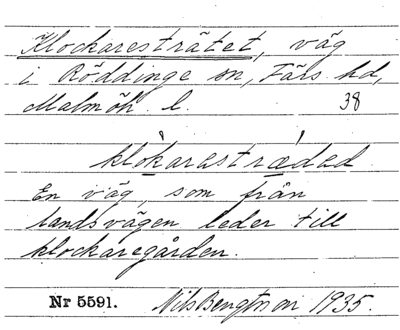 Klockaresträtet, väg
i Röddinge sn, Färs hd,
Malmöh. l. 38
klòkarastrǽdad
En väg, som från
landsvägen leder till
klockaregården.
Nr 5591. Nils Bengtsson 1935.